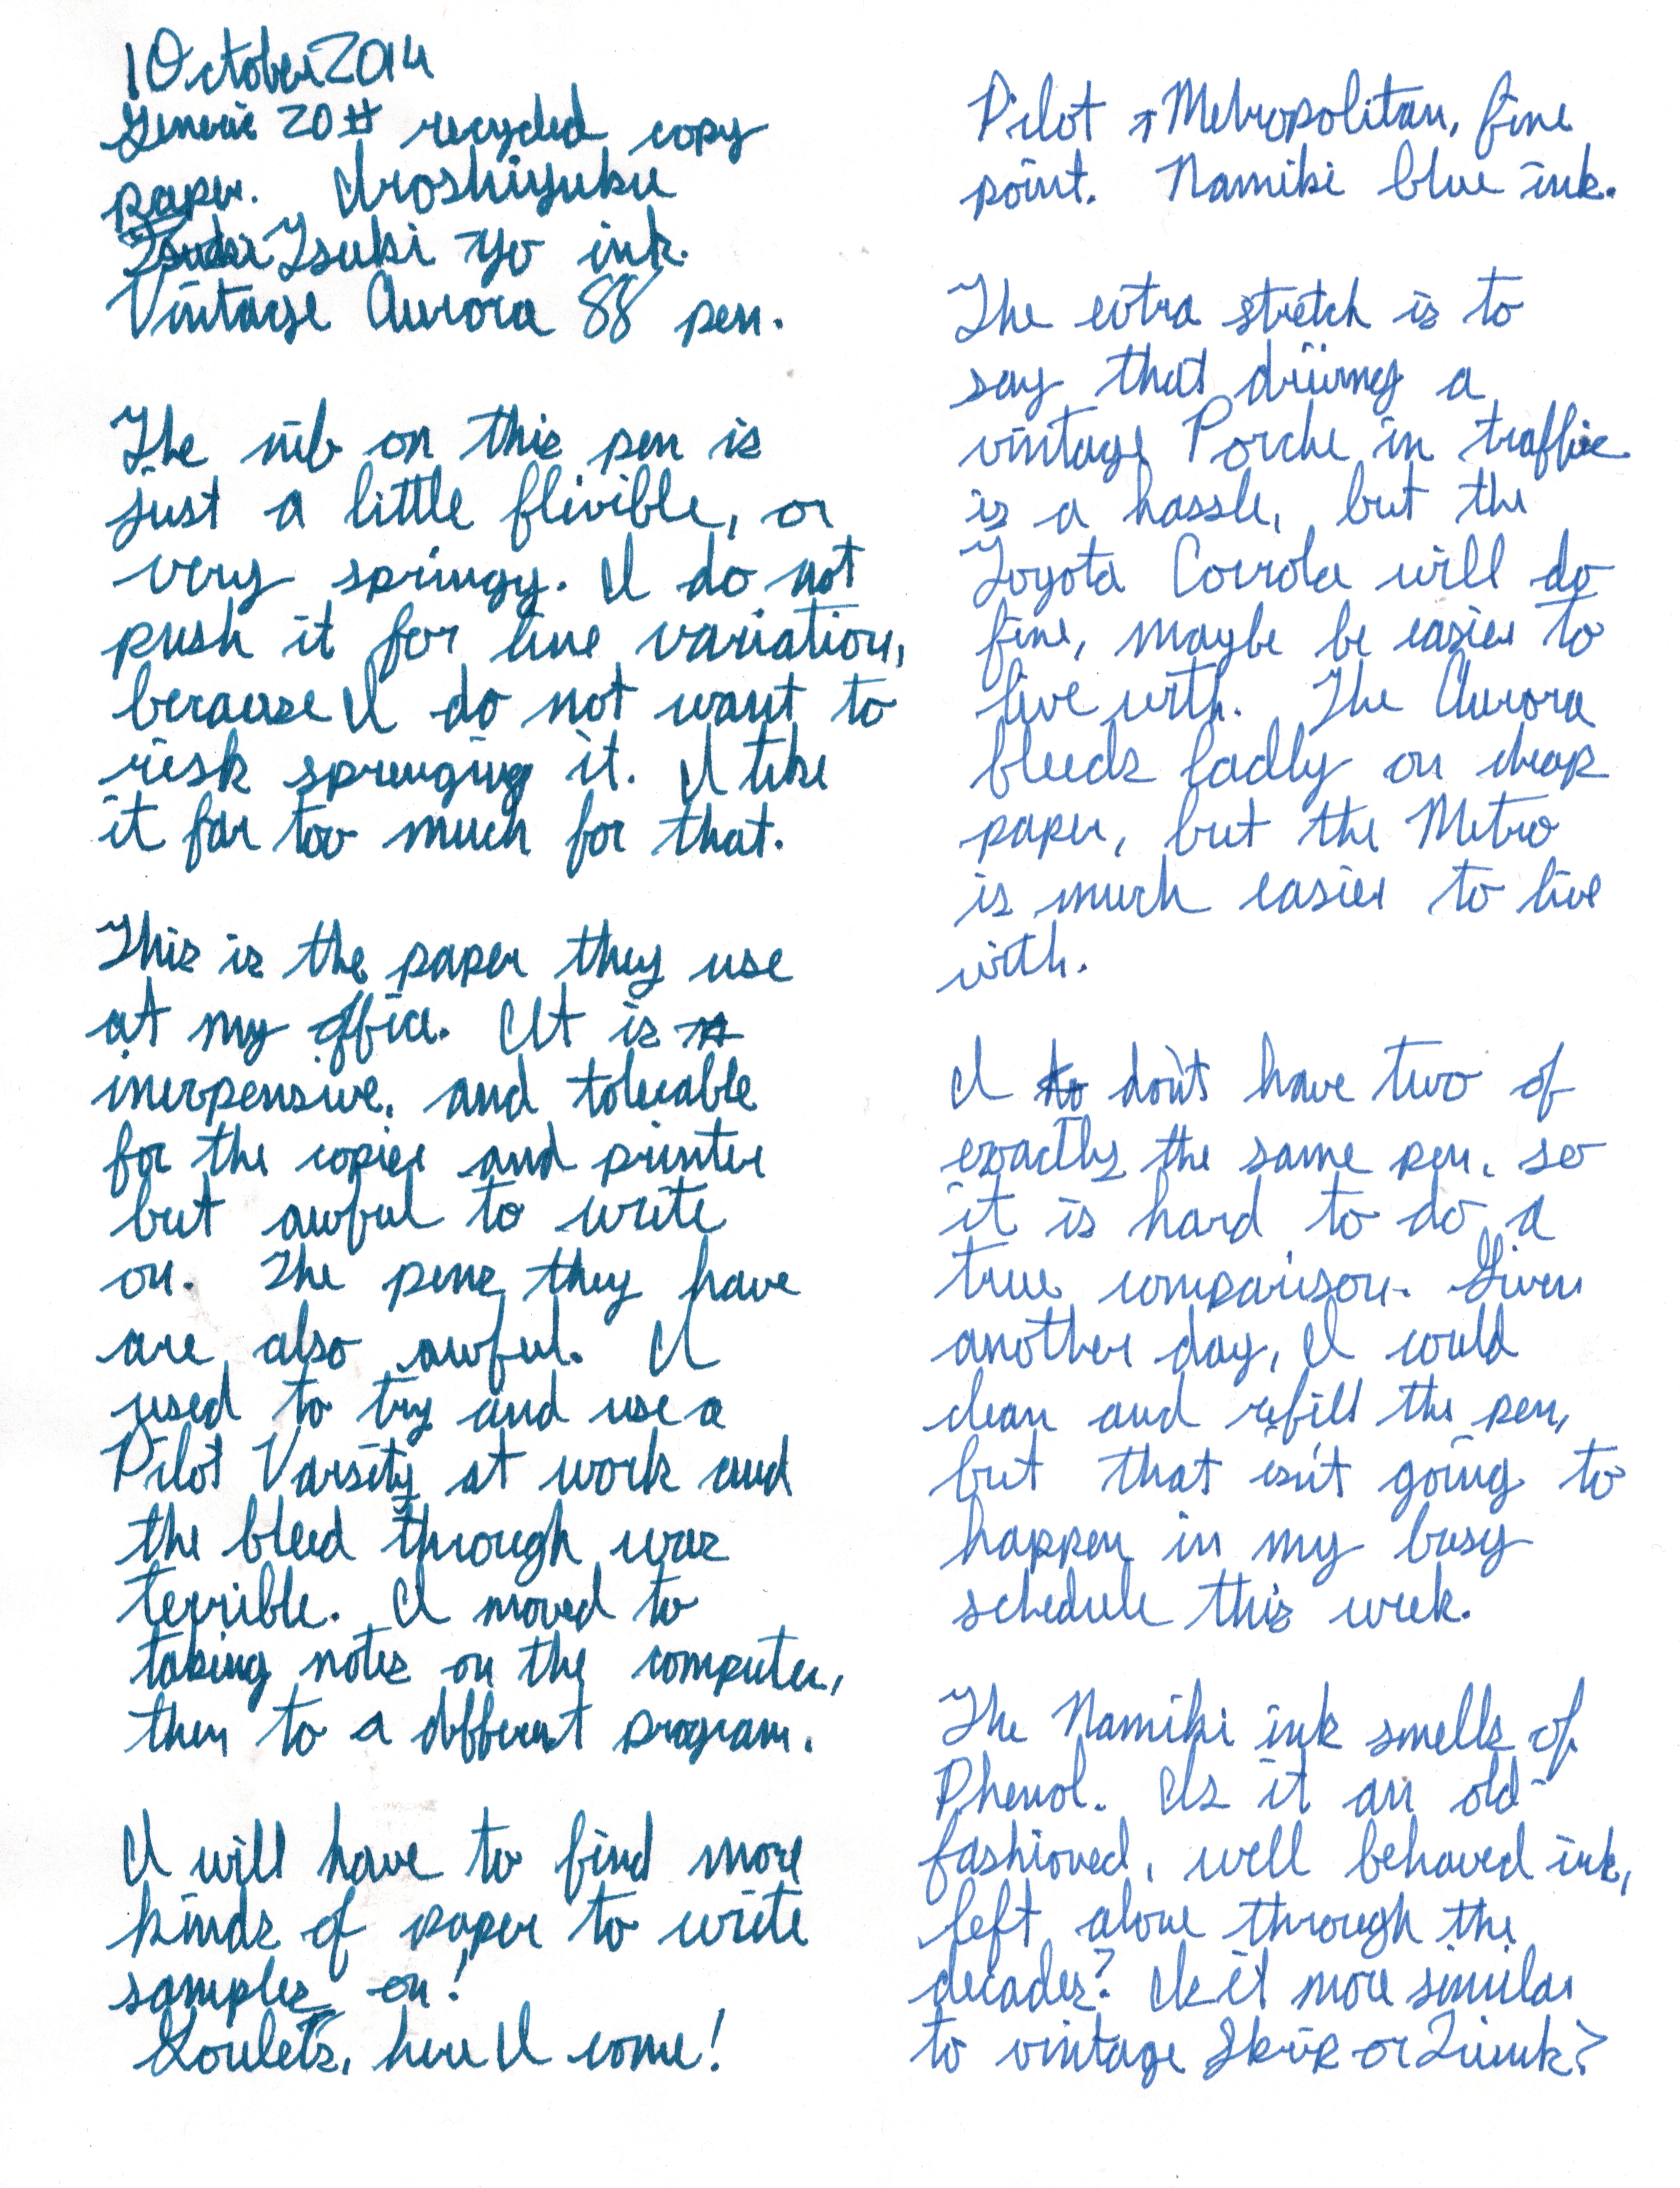 1 October 2014
Generic 20# recycled copy
paper. Iroshizuku
Tsuki Tsuki Yo ink.
Vintage Aurora 88 pen.
The nib on this pen is
just a little flixible, or
very springy. I do not
push it for line variation,
because I do not want to
risk sprenging it. I like
it far too much for that.
This is the paper they use
at my office. It is
inexpensive, and tolerable
for the copier and printer
but awful to write
on. The pens they have
are also awful. I
used to try and use a
Pilot Varsity at work and
the bleed through was
terrible. I moved to
taking notes on the computer,
then to a different program.
I will have to find more
kinds of paper to write
samples on!
Goulets, here I come!
Pilot Metropolitan, fine
point. Namiki blue ink.
The extra stretch is to
say that driving a
vintage Porche in traffic
is a hassle, but the
Toyota Corrola will do
fine, maybe be easier to
live with. The Aurora
bleeds badly on cheap
paper, but the Metro
is much easier to live
with.
I do don't have two of
exactly the same pen, so
it is hard to do a
true comparison. Given
another day, I could
clean and refill the pen,
but that isn't going to
happen in my busy
schedule this week.
The Namiki ink smells of
Phenol. Is it an old-
fashioned, well behaved ink,
left alone through the
decades? Is it more similar
to vintage Skrip or Quink?